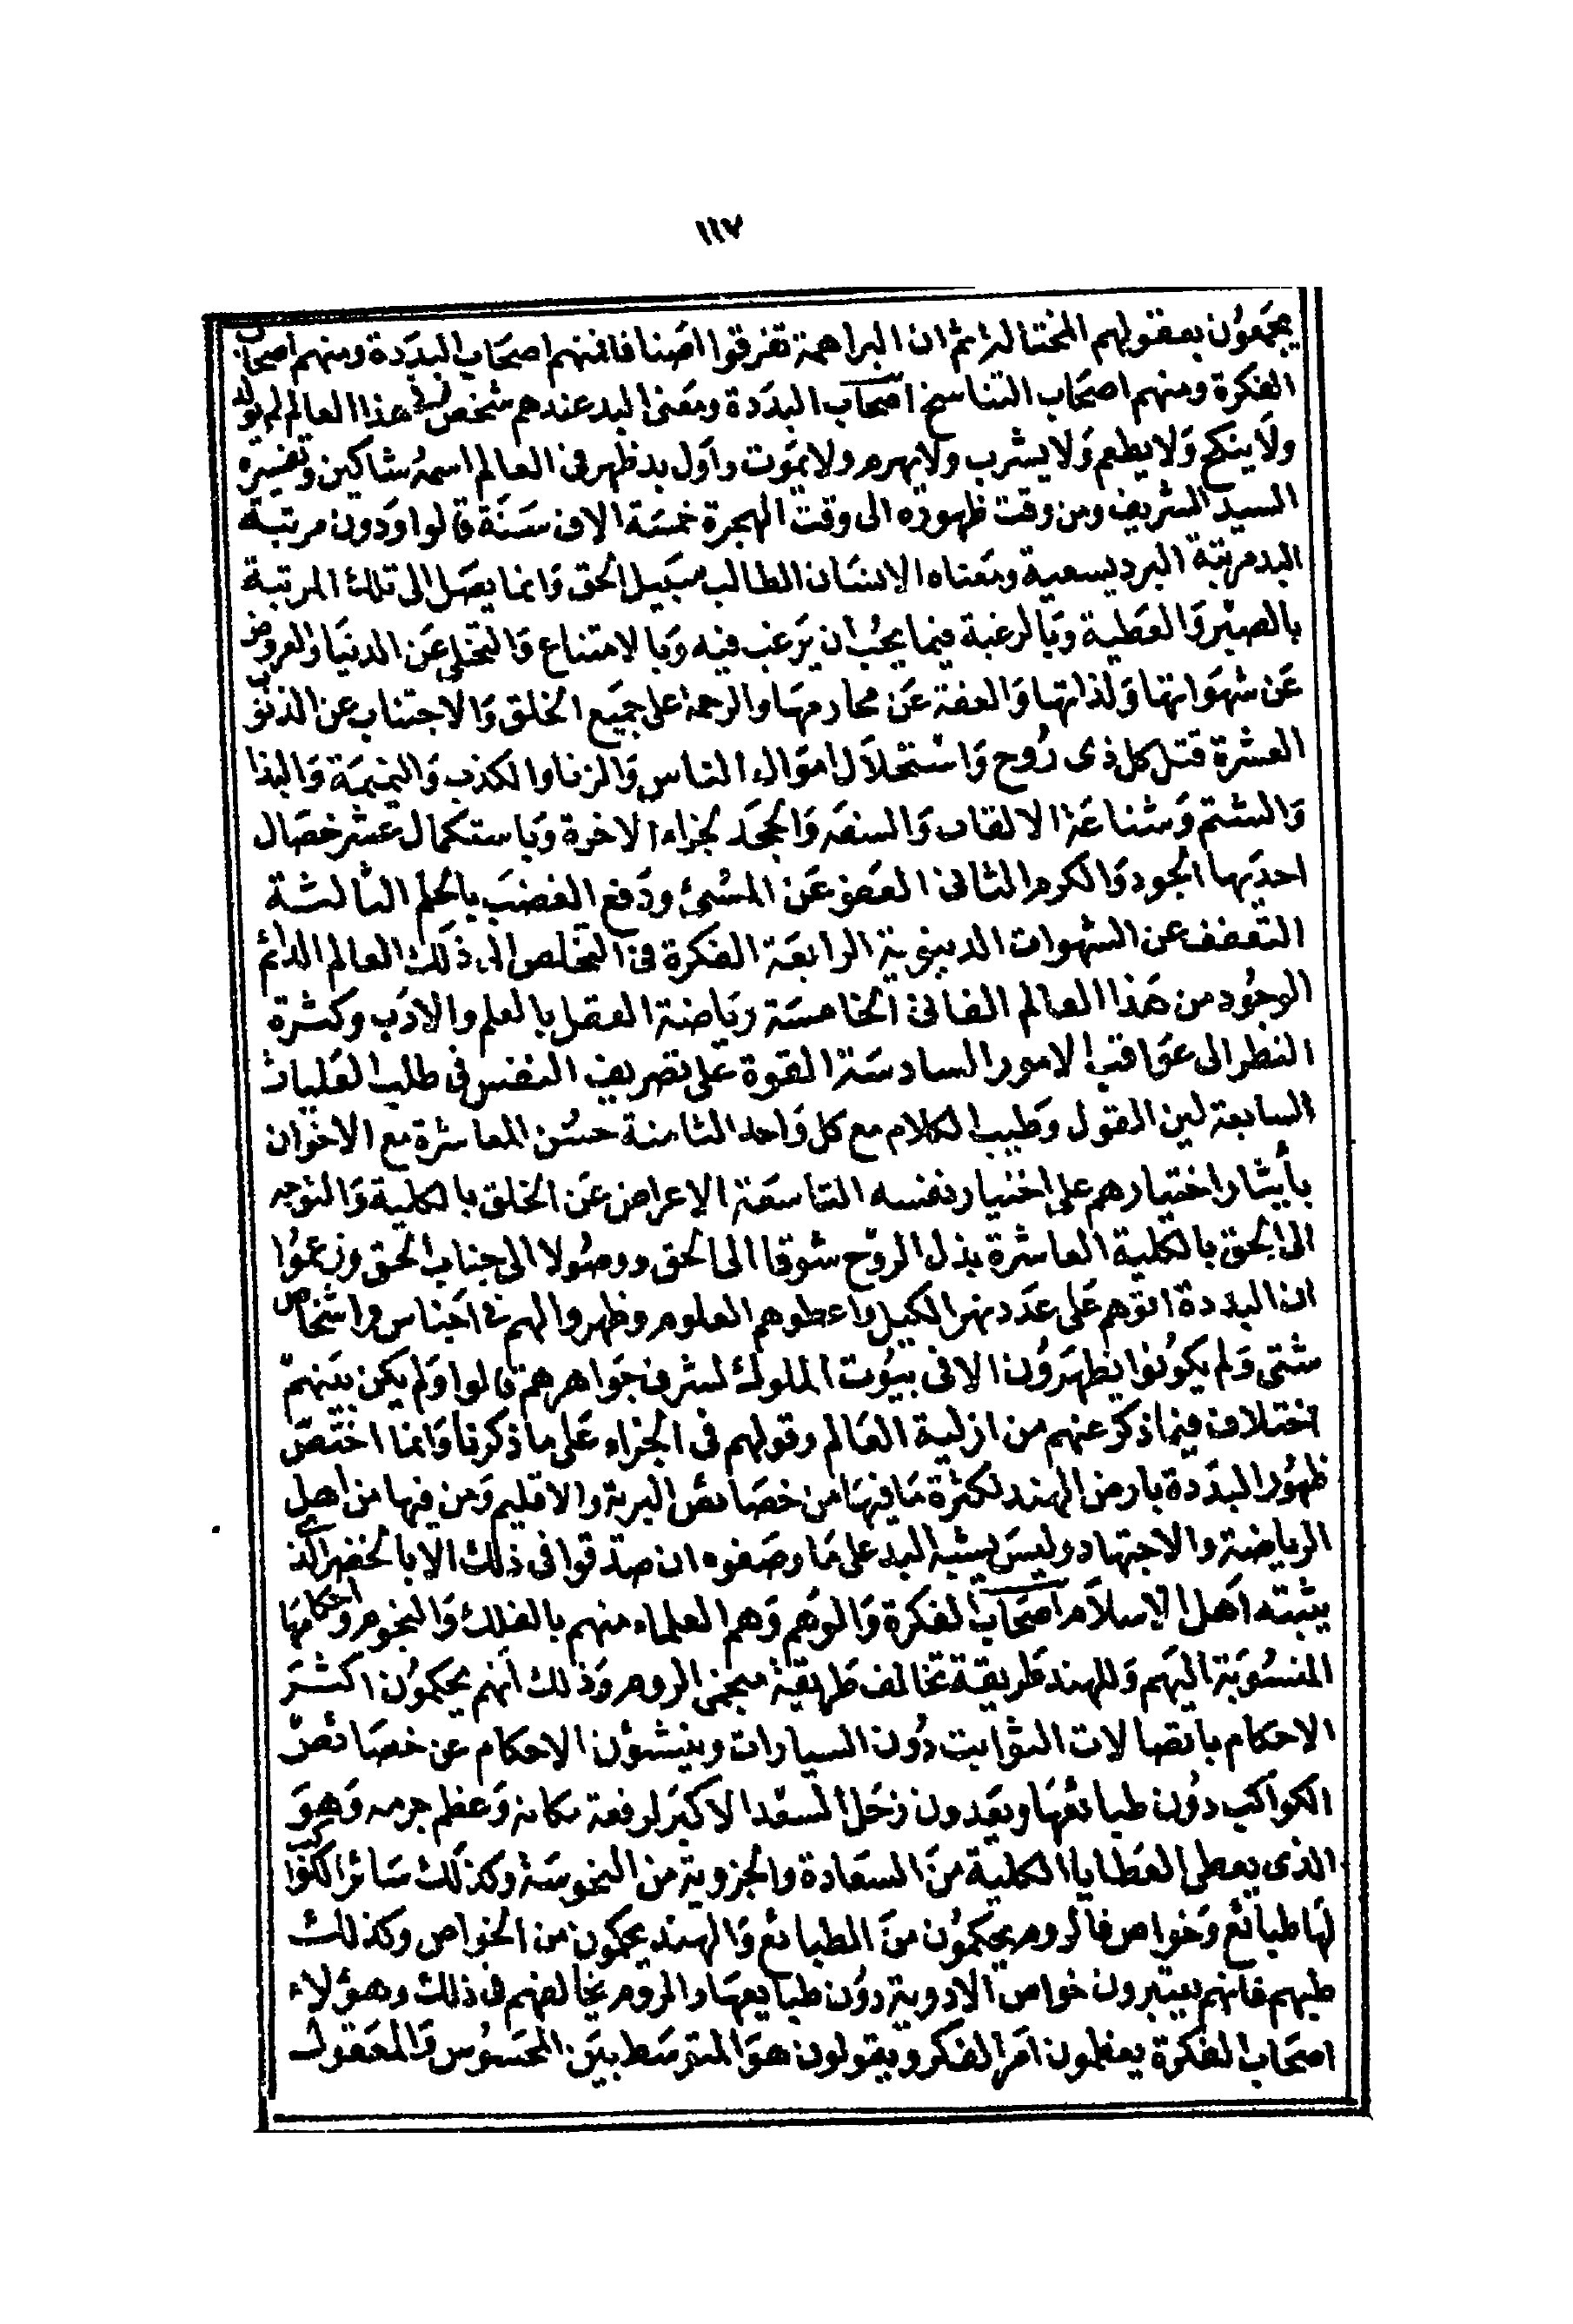 ١١٧
يجمعون بعقولهم المختالة ثم ان البراهمة تفرقوا اصنافا فمنهم اصحاب البددة ومنهم اصحاب
الفكرة ومنهم اصحاب التناسخ اصحاب البددة ومعنى البد عندهم شخص في هذا العالم لم يولد
ولا ينكح ولا يطعم ولا يشرب ولا يهرم ولا يموت واول بد ظهر في العالم اسمه شاكين وتفسيره
السيد الشريف ومن وقت ظهوره الى وقت الهجرة خمسة الاف سنة قالوا ودون مرتبة
البد مرتبة البرديسعية ومعناه الانسان الطالب سبيل الحق وانما يصل الى تلك المرتبة
بالصبر والعطية وبالرغبة فيما يجب ان يرغب فيه وبالامتناع والتخلى عن الدنيا والعروض
عن شهواتها ولذاتها والعفة عن محارمها والرحمة على جميع الخلق والاجتناب عن الذنوب
العشرة قتل كل ذى روح واستحلال اموال الناس والزنا والكذب والنميمة والبذا
والشتم وشناعة الالقاب والسفه والجحد لجزاء الاخرة وباستكمال عشر خصال
احديها الجود والكرم الثانى العفو عن المسئ ودفع الغضب بالحلم الثالثة
التعفف عن الشهوات الدينوية الرابعة الفكرة فى التخلص الى ذلك العالم الدائم
الوجود من هذا العالم الفانى الخامسة رياضة العقل بالعلم والادب وكثرة
النظر الى عواقب الامور السادسة القوة على تصريف النفس فى طلب العليات
السابعة لين القول وطيب الكلام مع كل واحد الثامنة حسن المعاشرة مع الاخوان
بأيثار اختيارهم على اختيار نفسه التاسعة الاعراض عن الخلق بالكلية والتوجه
الى الحق بالكلية العاشرة بذل الروح شوقا الى الحق ووصولا الى جناب الحق وزعموا
ان البددة اتوهم على عدد نهر الكيل واعطوهم العلوم وظهروا لهم فى اجناس واشخاص
شتى ولم يكونوا يظهرون الا فى بيوت الملوك لشرف جواهرهم قالوا ولم يكن بينهم
اختلاف فيما ذكر عنهم من ازلية العالم وقولهم فى الجزاء على ما ذكرنا وانما اختص
ظهور البددة بارض الهند لكثرة ما فيها من خصائص البرية والاقليم ومن فيها من اهل
الرياضة والاجتهاد وليس يشبه البد على ما وصفوه ان صدقوا فى ذلك الا بالخضر الذى
يثبته اهل الاسلام اصحاب الفكرة والوهم وهم العلماء منهم بالفلك والنجوم واحكامها
المنسوبة اليهم وللهند طريقة تخالف طريقة منجمى الروم وذلك انهم يحكمون اكثر
الاحكام باتصالات الثوابت دون السيارات وينشؤن الاحكام عن خصائص
الكواكب دون طبائعها ويعدون زحل السعد الاكبر لرفعة مكانه وعظم جرمه وهو
الذى يعطى العطايا الكلية من السعادة والجزوية من النحوسة وكذلك سائر الكواكب
لها طبائع وخواص فالروم يحكمون من الطبائع والهند يحكمون من الخواص وكذلك
طبهم فانهم يعتبرون خواص الادوية دون طبايعها والروم يخالفهم فى ذلك وهؤلاء
اصحاب الفكرة يعظمون امر الفكر ويقولون هو المتوسط بين المحسوس والمعقول